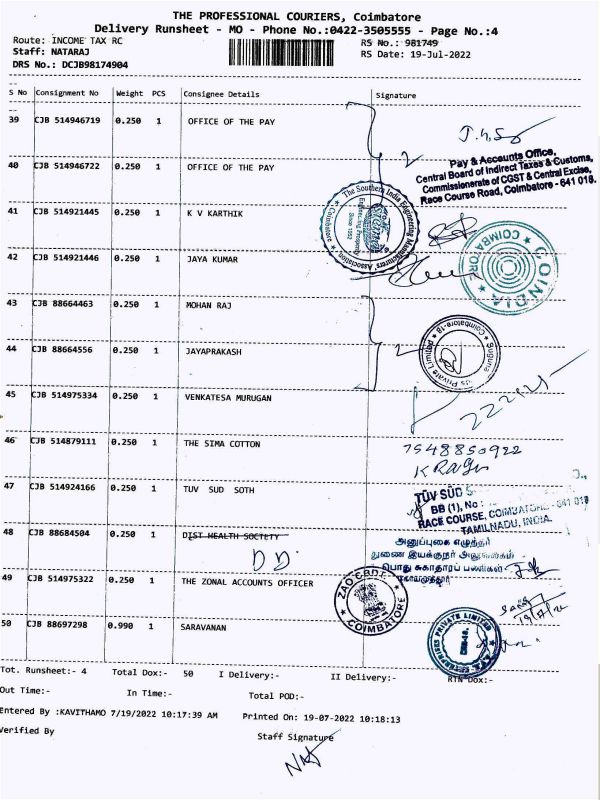 THE PROFESSIONAL COURIERS, Coimbatore
Delivery Runsheet - MO - Phone No.:0422-3505555 - Page No.:4
Route: INCOME TAX RC
RS No.: 981749
Staff: NATARAJ
RS Date: 19-Jul-2022
DRS No.: DCJB98174904
S No Consignment No Weight PCS Consignee Details Signature
39 CJB 514946719 0.250 1 OFFICE OF THE PAY
40 CJB 514946722 0.250 1 OFFICE OF THE PAY
2
Pay & Accounts Office,
Central Board of Indirect Taxes & Customs,
Commissionerate of CGST & Central Excise,
Race Course Road, Coimbatore - 641 018.
41 CJB 514921445 0.250 1 K V KARTHIK
The Southern India Engineering Manufacturers' Association
Coimbatore
Engineering Prosperity
Since 1952
42 CJB 514921446 0.250 1 JAYA KUMAR
COINDIA
COIMBATORE
43 CJB 88664463 0.250 1 MOHAN RAJ
44 CJB 88664556 0.250 1 JAYAPRAKASH
2
Suguna
ds Private Limited
Coimbatore-18
45 CJB 514975334 0.250 1 VENKATESA MURUGAN
46 CJB 514879111 0.250 1 THE SIMA COTTON
7548850922
K Ragu
47 CJB 514924166 0.250 1 TUV SUD SOTH
TÜV SÜD S
BB (1), No :
RACE COURSE, COIMBATORE - 641 018
TAMILNADU, INDIA.
48 CJB 88684504 0.250 1 DIST HEALTH SOCTETY
DD
அனுப்புகை எழுத்தர்
துணை இயக்குநர் அலுவலகம்
பொது சுகாதாரப் பணிகள்
49 CJB 514975322 0.250 1 THE ZONAL ACCOUNTS OFFICER
ZAO CBDT
COIMBATORE
19/7/22
50 CJB 88697298 0.990 1 SARAVANAN
ENTERPRISES PRIVATE LIMITED
Tot. Runsheet:- 4 Total Dox:- 50 I Delivery:- II Delivery:- RTN Dox:-
Out Time:- In Time:- Total POD:-
Entered By :KAVITHAMO 7/19/2022 10:17:39 AM Printed On: 19-07-2022 10:18:13
Verified By Staff Signature